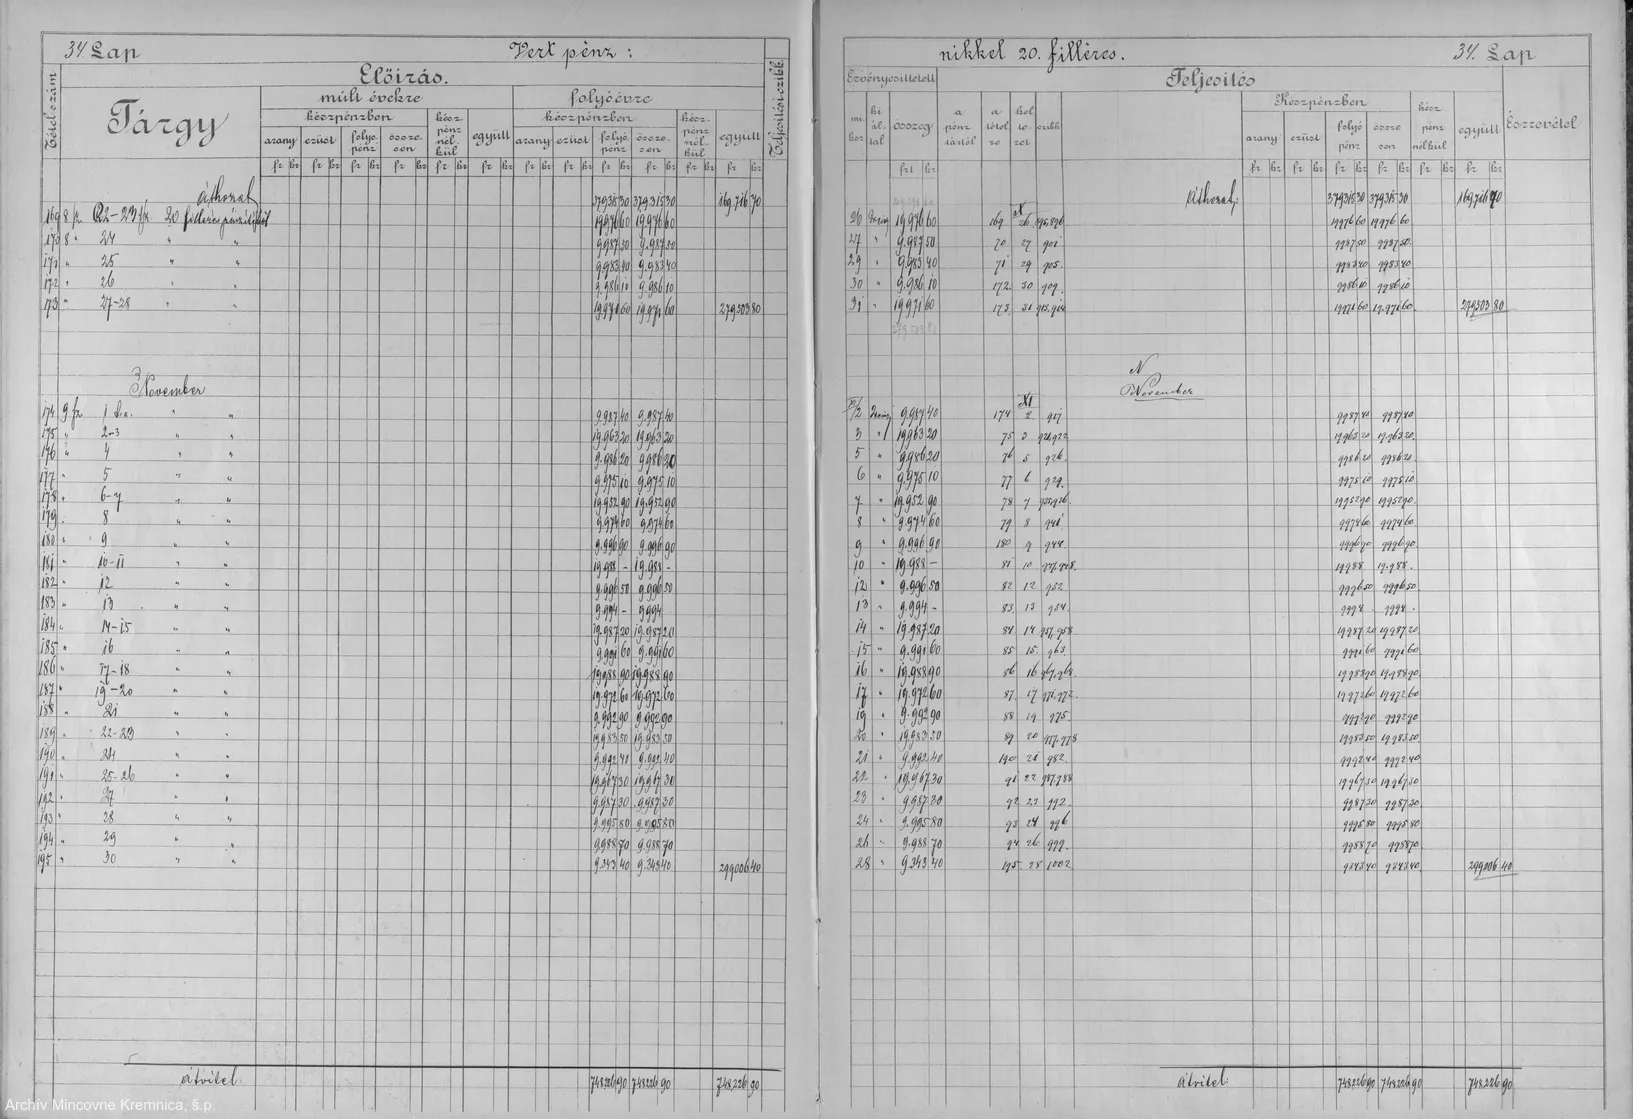 34 Lap
Vert pénz :
Előirás.
Tételszám
Tárgy
múlt évekre
folyóévre
készpénzben
kész pénz nélkül
együtt
készpénzben
kész- pénz nélkül
együtt
Teljesitési czikk.
arany ezüst folyó pénz össze- sen
arany ezüst folyó pénz össze- sen
fr kr fr kr fr kr fr kr fr kr fr kr fr kr fr kr fr kr fr kr fr kr fr kr
áthozat 379.315 30 379.315 30 169.716 70
169 8 fr. 22-23 fr. 20 19.976 60 19.976 60
170 8 " 24 " " 9.987 50 9.987 50
171 " 25 " " 9.983 40 9.983 40
172 " 26 " " 9.986 10 9.986 10
173 " 27-28 " " 19.971 60 19.971 60 279303 80
November
174 9 fr. 1 " " 9.987 40 9.987 40
175 " 2-3 " " 19.963 20 19.963 20
176 " 4 " " 9.986 20 9.986 20
177 " 5 " " 9.975 10 9.975 10
178 " 6-7 " " 19.952 90 19.952 90
179 " 8 " " 9.974 60 9.974 60
180 " 9 " " 9.996 90 9.996 90
181 " 10-11 " " 19.988 - 19.988 -
182 " 12 " " 9.996 50 9.996 50
183 " 13 " " 9.994 - 9.994
184 " 14-15 " " 19.987 20 19.987 20
185 " 16 " " 9.991 60 9.991 60
186 " 17-18 " " 19988 90 19988 90
187 " 19-20 " " 19.972 60 19.972 60
188 " 21 " " 9.992 90 9.992 90
189 " 22-23 " " 19983 50 19.983 50
190 " 24 " " 9.992 40 9.992 40
191 " 25-26 " " 19.967 30 19.967 30
192 " 27 " " 9.987 30 9.987 30
193 " 28 " " 9.995 80 9.995 80
194 " 29 " 9.988 70 9.988 70
195 " 30 " " 9.343 40 9.343 40 299006 40
átvitel 748.226 90 748.226 90 748.226 90
nikkel 20. filléres.
34. Lap
Érvényesittetett
Teljesités
mi- kor ki ál- tal összeg a pénz tártól a tétel re kel te- zet czikk
Készpénzben
kész pénz nélkül
együtt
Észrevétel
arany ezüst folyó pénz össze sen
frt kr
fr kr fr kr fr kr fr kr fr kr fr kr
Áthozat: 379315 30 379315 30 169.716 70
X
26 19.976 60 169 26 19976 60 19976 60
27 " 9.987 50 70 27 901 9987 50 9987 50
29 " 9.983 40 71 29 905. 9983 40 9983 40
30 " 9.986 10 172. 30 909. 9986 10 9986 10
31 " 19.971 60 173. 31 913.914 19971 60 19.971 60 279303 80
N
November
XI
2 9.987 40 174 2 917 9987 40 9987 40
3 " 19963 20 75 3 921,922 19963 20 19.963 20.
5 " 9.986 20 76 5 926. 9986 20 9986 20.
6 " 9.975 10 77 6 929. 9975 10 9975 10
7 " 19.952 90 78 7 19952 90 19952 90.
8 " 9.974 60 79 8 941 9974 60 9974 60
9 " 9.996 90 180 9 944. 9996 90 9996 90.
10 " 19.988 - 81 10 19988 19.988 .
12 " 9.996 50 82 12 952 9996 50 9996 50.
13 " 9.994 - 83. 13 954. 9994 . 9994 .
14 " 19.987 20 84 14 957,958 19987 20 19987 20.
15 " 9.991 60 85 15. 963. 9991 60 9991 60
16 " 19.988 90 86 16 967,968 19988 90 19988 90.
17 " 19.972 60 87. 17 971,972. 19972 60 19972 60
19 " 9.992 90 88 19 975. 9992 90 9992 90
20 " 19983 50 89 20 977.978 19983 50 19983 50
21 " 9.992 40 190 21 982. 9992 40 9992 40
22 " 19.967 30 91 22 987,988 19967 30 19967 30
23 " 9987 30 92 23 992. 9987 30 9987 30
24 " 9.995 80 93 24 996 9995 80 9995 80
26 " 9.988 70 94 26 999. 9988 70 9988 70
28 " 9.343 40 195 28 1002 9343 40 9343 40 299006 40
átvitel: 748226 90 748226 90 748226 90
Archív Mincovne Kremnica, š.p.